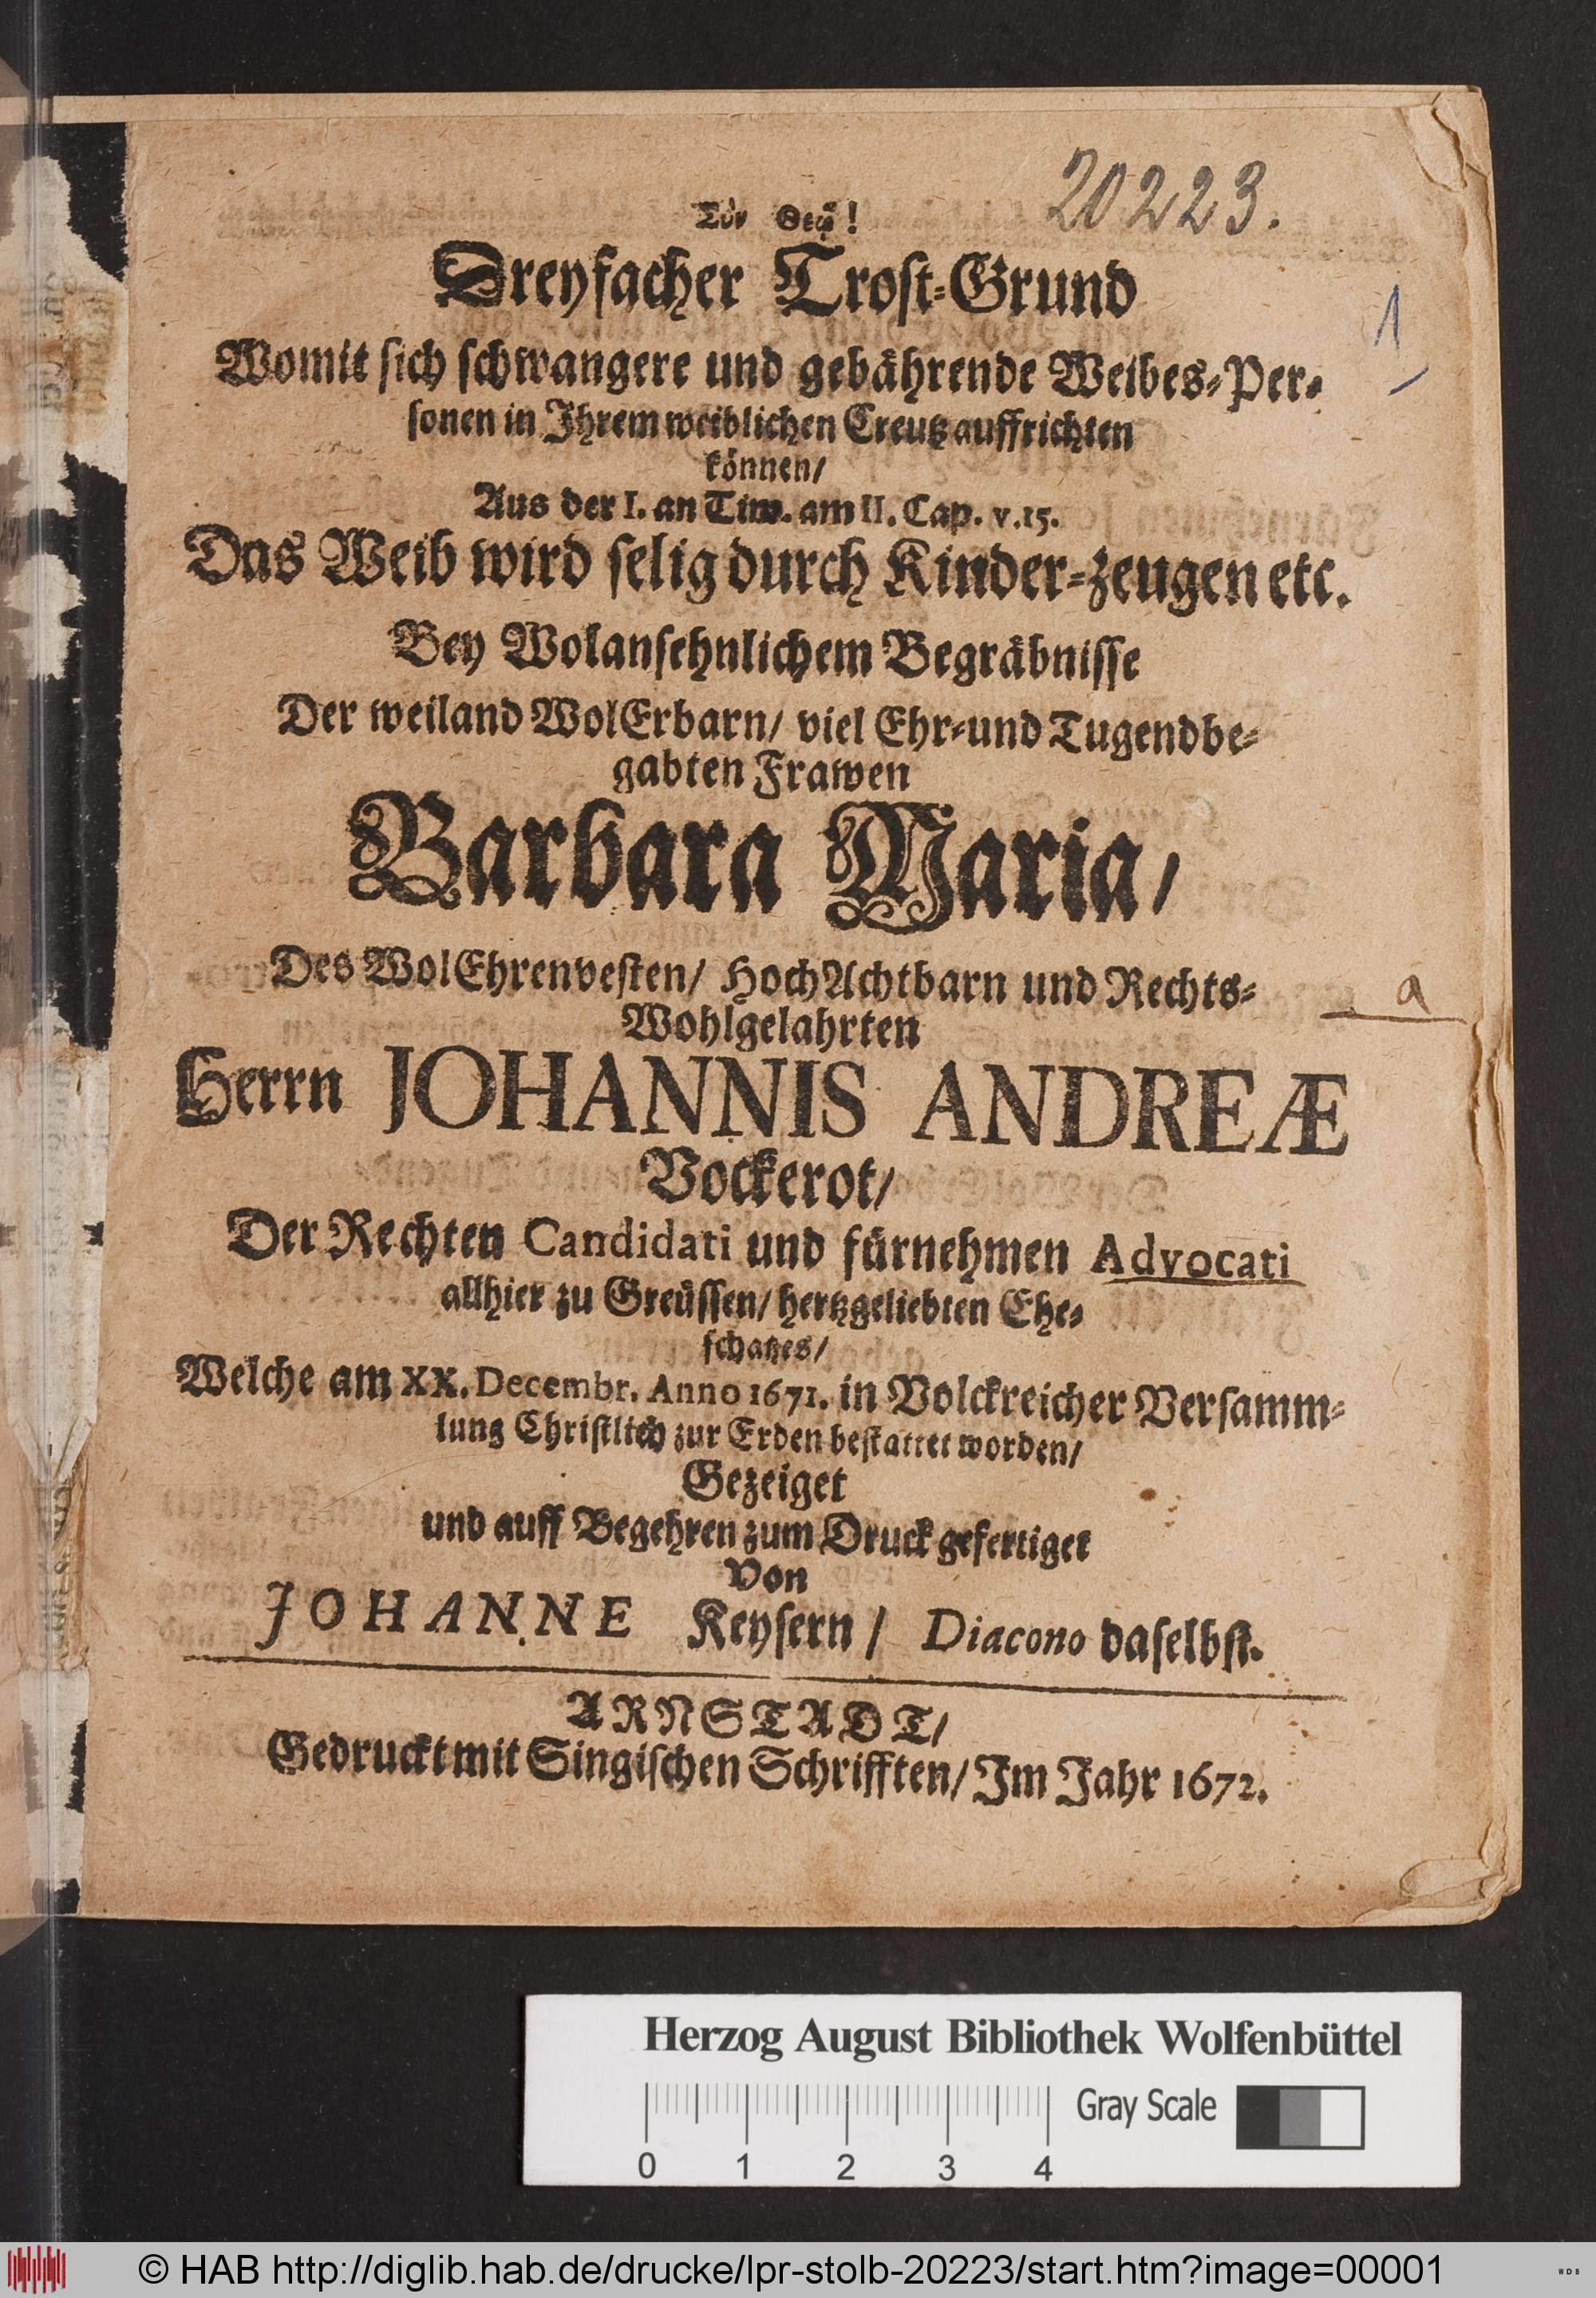 20223.
Σὺν Θεῷ!
Dreyfacher Trost-Grund
1
Womit sich schwangere und gebährende Weibes-Per-
sonen in Ihrem weiblichen Creutz auffrichten
können/
Aus der I. an Tim. am II. Cap. v. 15.
Das Weib wird selig durch Kinder-zeugen etc.
Bey Wolansehnlichem Begräbnisse
Der weiland WolErbarn/ viel Ehr-und Tugendbe-
gabten Frawen
Barbara Maria/
Des WolEhrenvesten/ HochAchtbarn und Rechts-
a
Wohlgelahrten
Herrn JOHANNIS ANDREÆ
Vockerot/
Der Rechten Candidati und fürnehmen Advocati
allhier zu Greüssen/ hertzgeliebten Ehe-
schatzes/
Welche am XX. Decembr. Anno 1671. in Volckreicher Versamm-
lung Christlich zur Erden bestattet worden/
Gezeiget
und auff Begehren zum Druck gefertiget
Von
JOHANNE Keysern/ Diacono daselbst.
ARNSTADT/
Gedruckt mit Singischen Schrifften/ Im Jahr 1672.
Herzog August Bibliothek Wolfenbüttel
Gray Scale
0 1 2 3 4
© HAB http://diglib.hab.de/drucke/lpr-stolb-20223/start.htm?image=00001
WDB